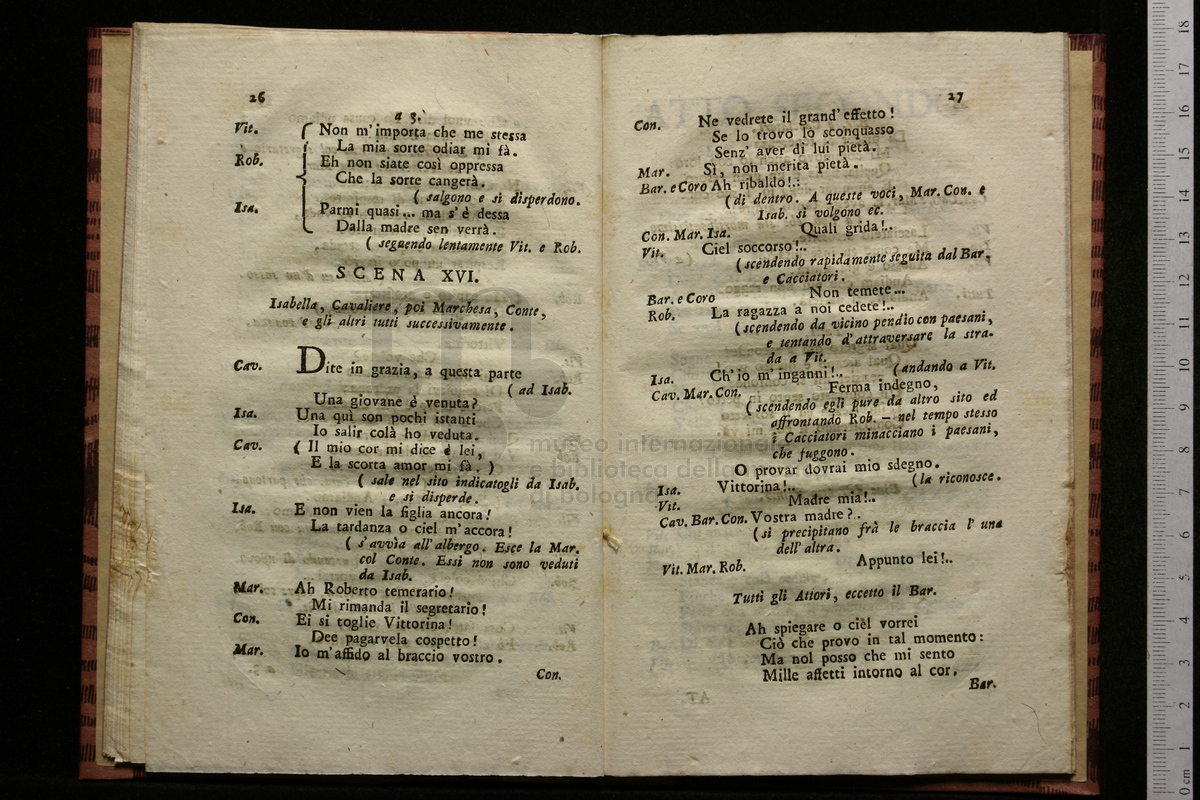 26
a 3.
Vit. Non m'importa che me stessa
La mia sorte odiar mi fà.
Rob. Eh non siate così oppressa
Che la sorte cangerà.
( salgono e si disperdono.
Isa. Parmi quasi... ma s'è dessa
Dalla madre sen verrà.
( seguendo lentamente Vit. e Rob.
SCENA XVI.
Isabella, Cavaliere, poi Marchesa, Conte,
e gli altri tutti successivamente.
Cav. Dite in grazia, a questa parte
( ad Isab.
Una giovane è venuta?
Isa. Una quì son pochi istanti
Io salir colà ho veduta.
Cav. ( Il mio cor mi dice è lei,
E la scorta amor mi fà. )
( sale nel sito indicatogli da Isab.
e si disperde.
Isa. E non vien la figlia ancora!
La tardanza o ciel m'accora!
( s'avvìa all'albergo. Esce la Mar.
col Conte. Essi non sono veduti
da Isab.
Mar. Ah Roberto temerario!
Mi rimanda il segretario!
Con. Ei si toglie Vittorina!
Dee pagarvela cospetto!
Mar. Io m'affido al braccio vostro.
Con.
27
Con. Ne vedrete il grand'effetto!
Se lo trovo lo sconquasso
Senz' aver di lui pietà.
Mar. Sì, non merita pietà.
Bar. e Coro Ah ribaldo!..
( di dentro. A queste voci, Mar. Con. e
Isab. si volgono ec.
Con. Mar. Isa. Quali grida!..
Vit. Ciel soccorso!..
( scendendo rapidamente seguita dal Bar.
e Cacciatori.
Bar. e Coro Non temete...
Rob. La ragazza a noi cedete!..
( scendendo da vicino pendìo con paesani,
e tentando d'attraversare la stra-
da a Vit.
Isa. Ch'io m'inganni!.. (andando a Vit.
Cav. Mar. Con. Ferma indegno,
( scendendo egli pure da altro sito ed
affrontando Rob. — nel tempo stesso
i Cacciatori minacciano i paesani,
che fuggono.
O provar dovrai mio sdegno.
Isa. Vittorina!.. (la riconosce.
Vit. Madre mia!..
Cav. Bar. Con. Vostra madre?.
( si precipitano frà le braccia l' una
dell'altra.
Vit. Mar. Rob. Appunto lei!..
Tutti gli Attori, eccetto il Bar.
Ah spiegare o ciel vorrei
Ciò che provo in tal momento:
Ma nol posso che mi sento
Mille affetti intorno al cor.
Bar.
museo internazionale
e biblioteca della
di bologna
0 cm 1 2 3 4 5 6 7 8 9 10 11 12 13 14 15 16 17 18